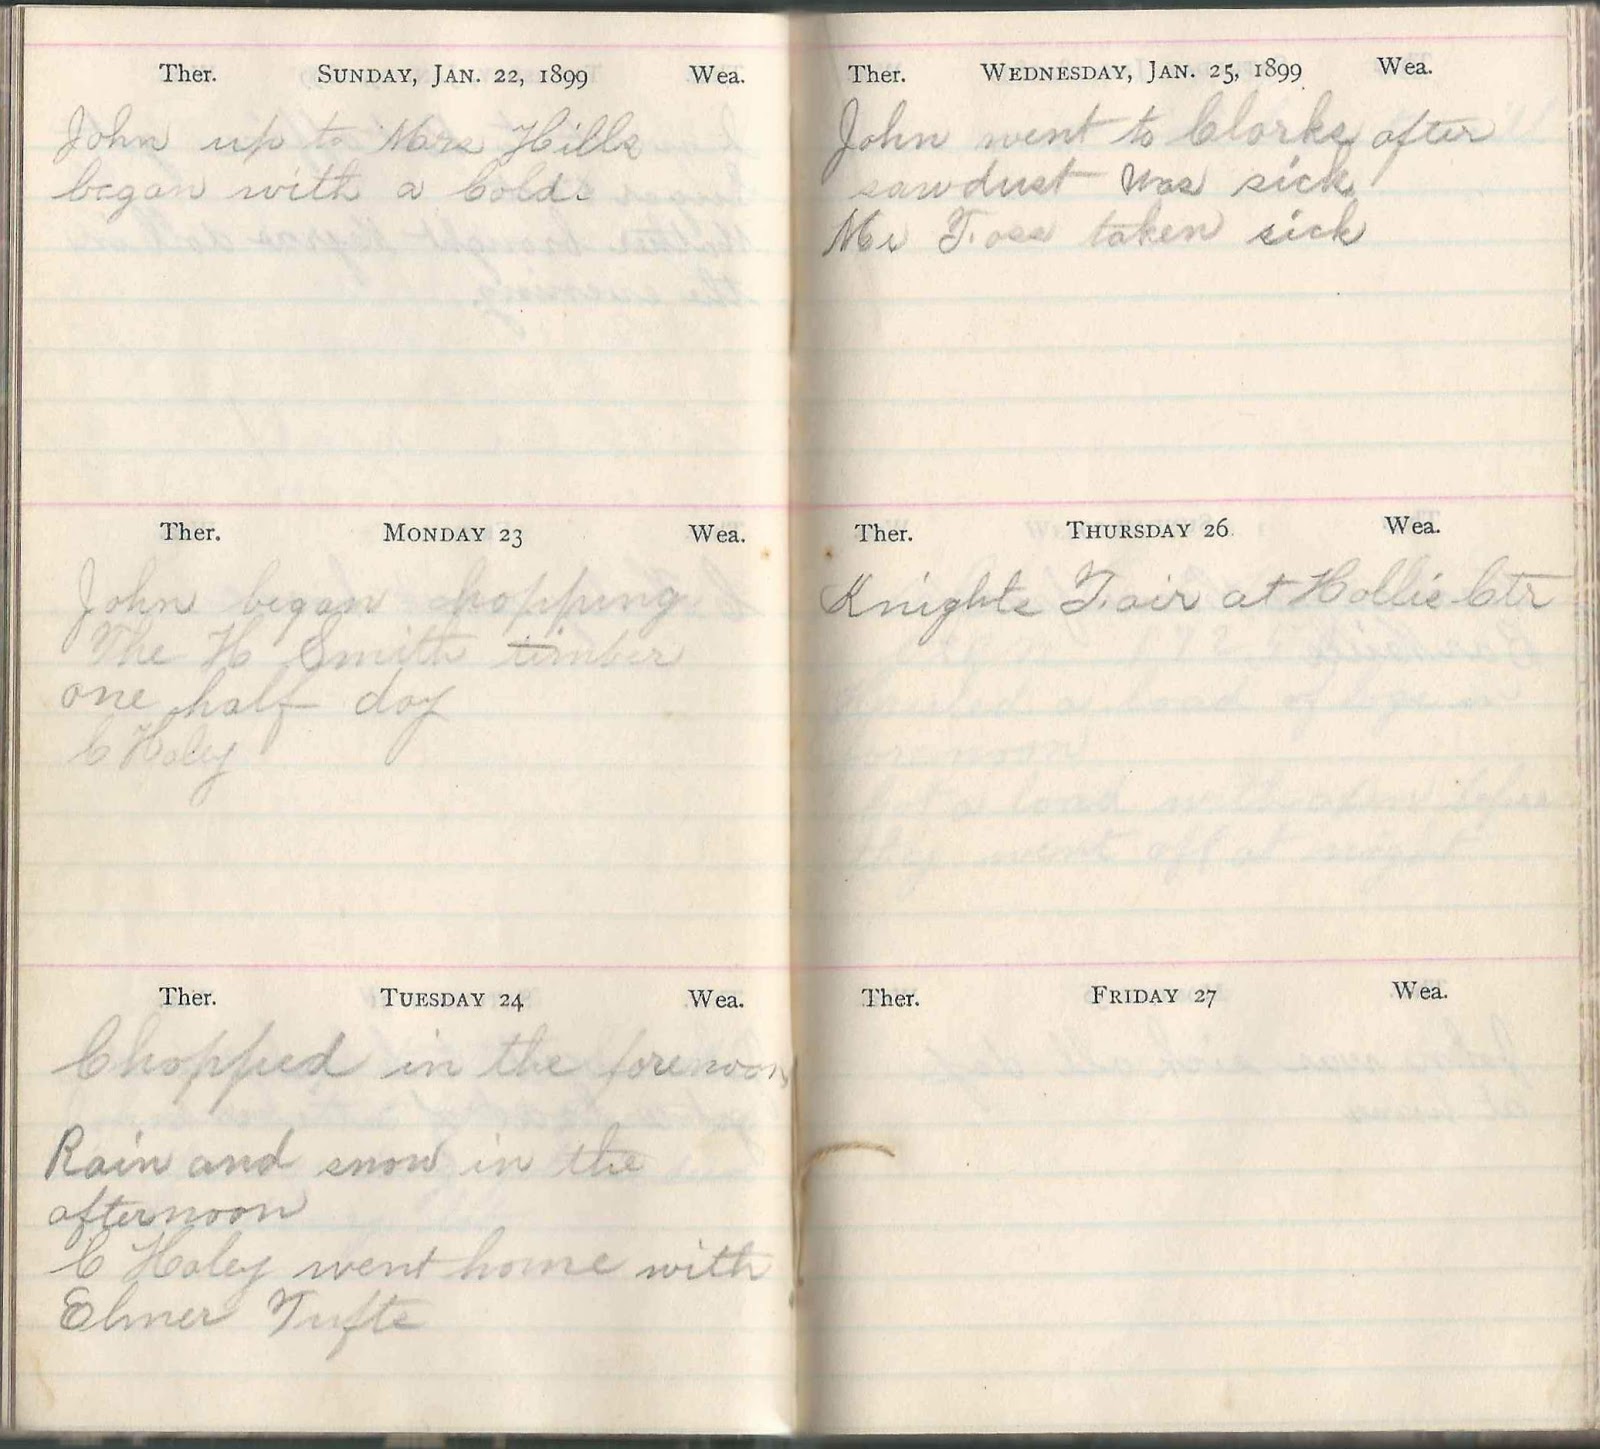 Ther. SUNDAY, JAN. 22, 1899 Wea.
John up to Mrs Hills
began with a Cold.
Ther. MONDAY 23 Wea.
John began chopping
The H Smith timber
one half day
C Haley
Ther. TUESDAY 24 Wea.
Chopped in the forenoon
Rain and snow in the
afternoon
C Haley went home with
Elmer Tufts
Ther. WEDNESDAY, JAN. 25, 1899 Wea.
John went to Clarks after
sawdust was sick
Mr Foss taken sick
Ther. THURSDAY 26 Wea.
Knights Fair at Hollis Ctr
forenoon
they went off at night
Ther. FRIDAY 27 Wea.